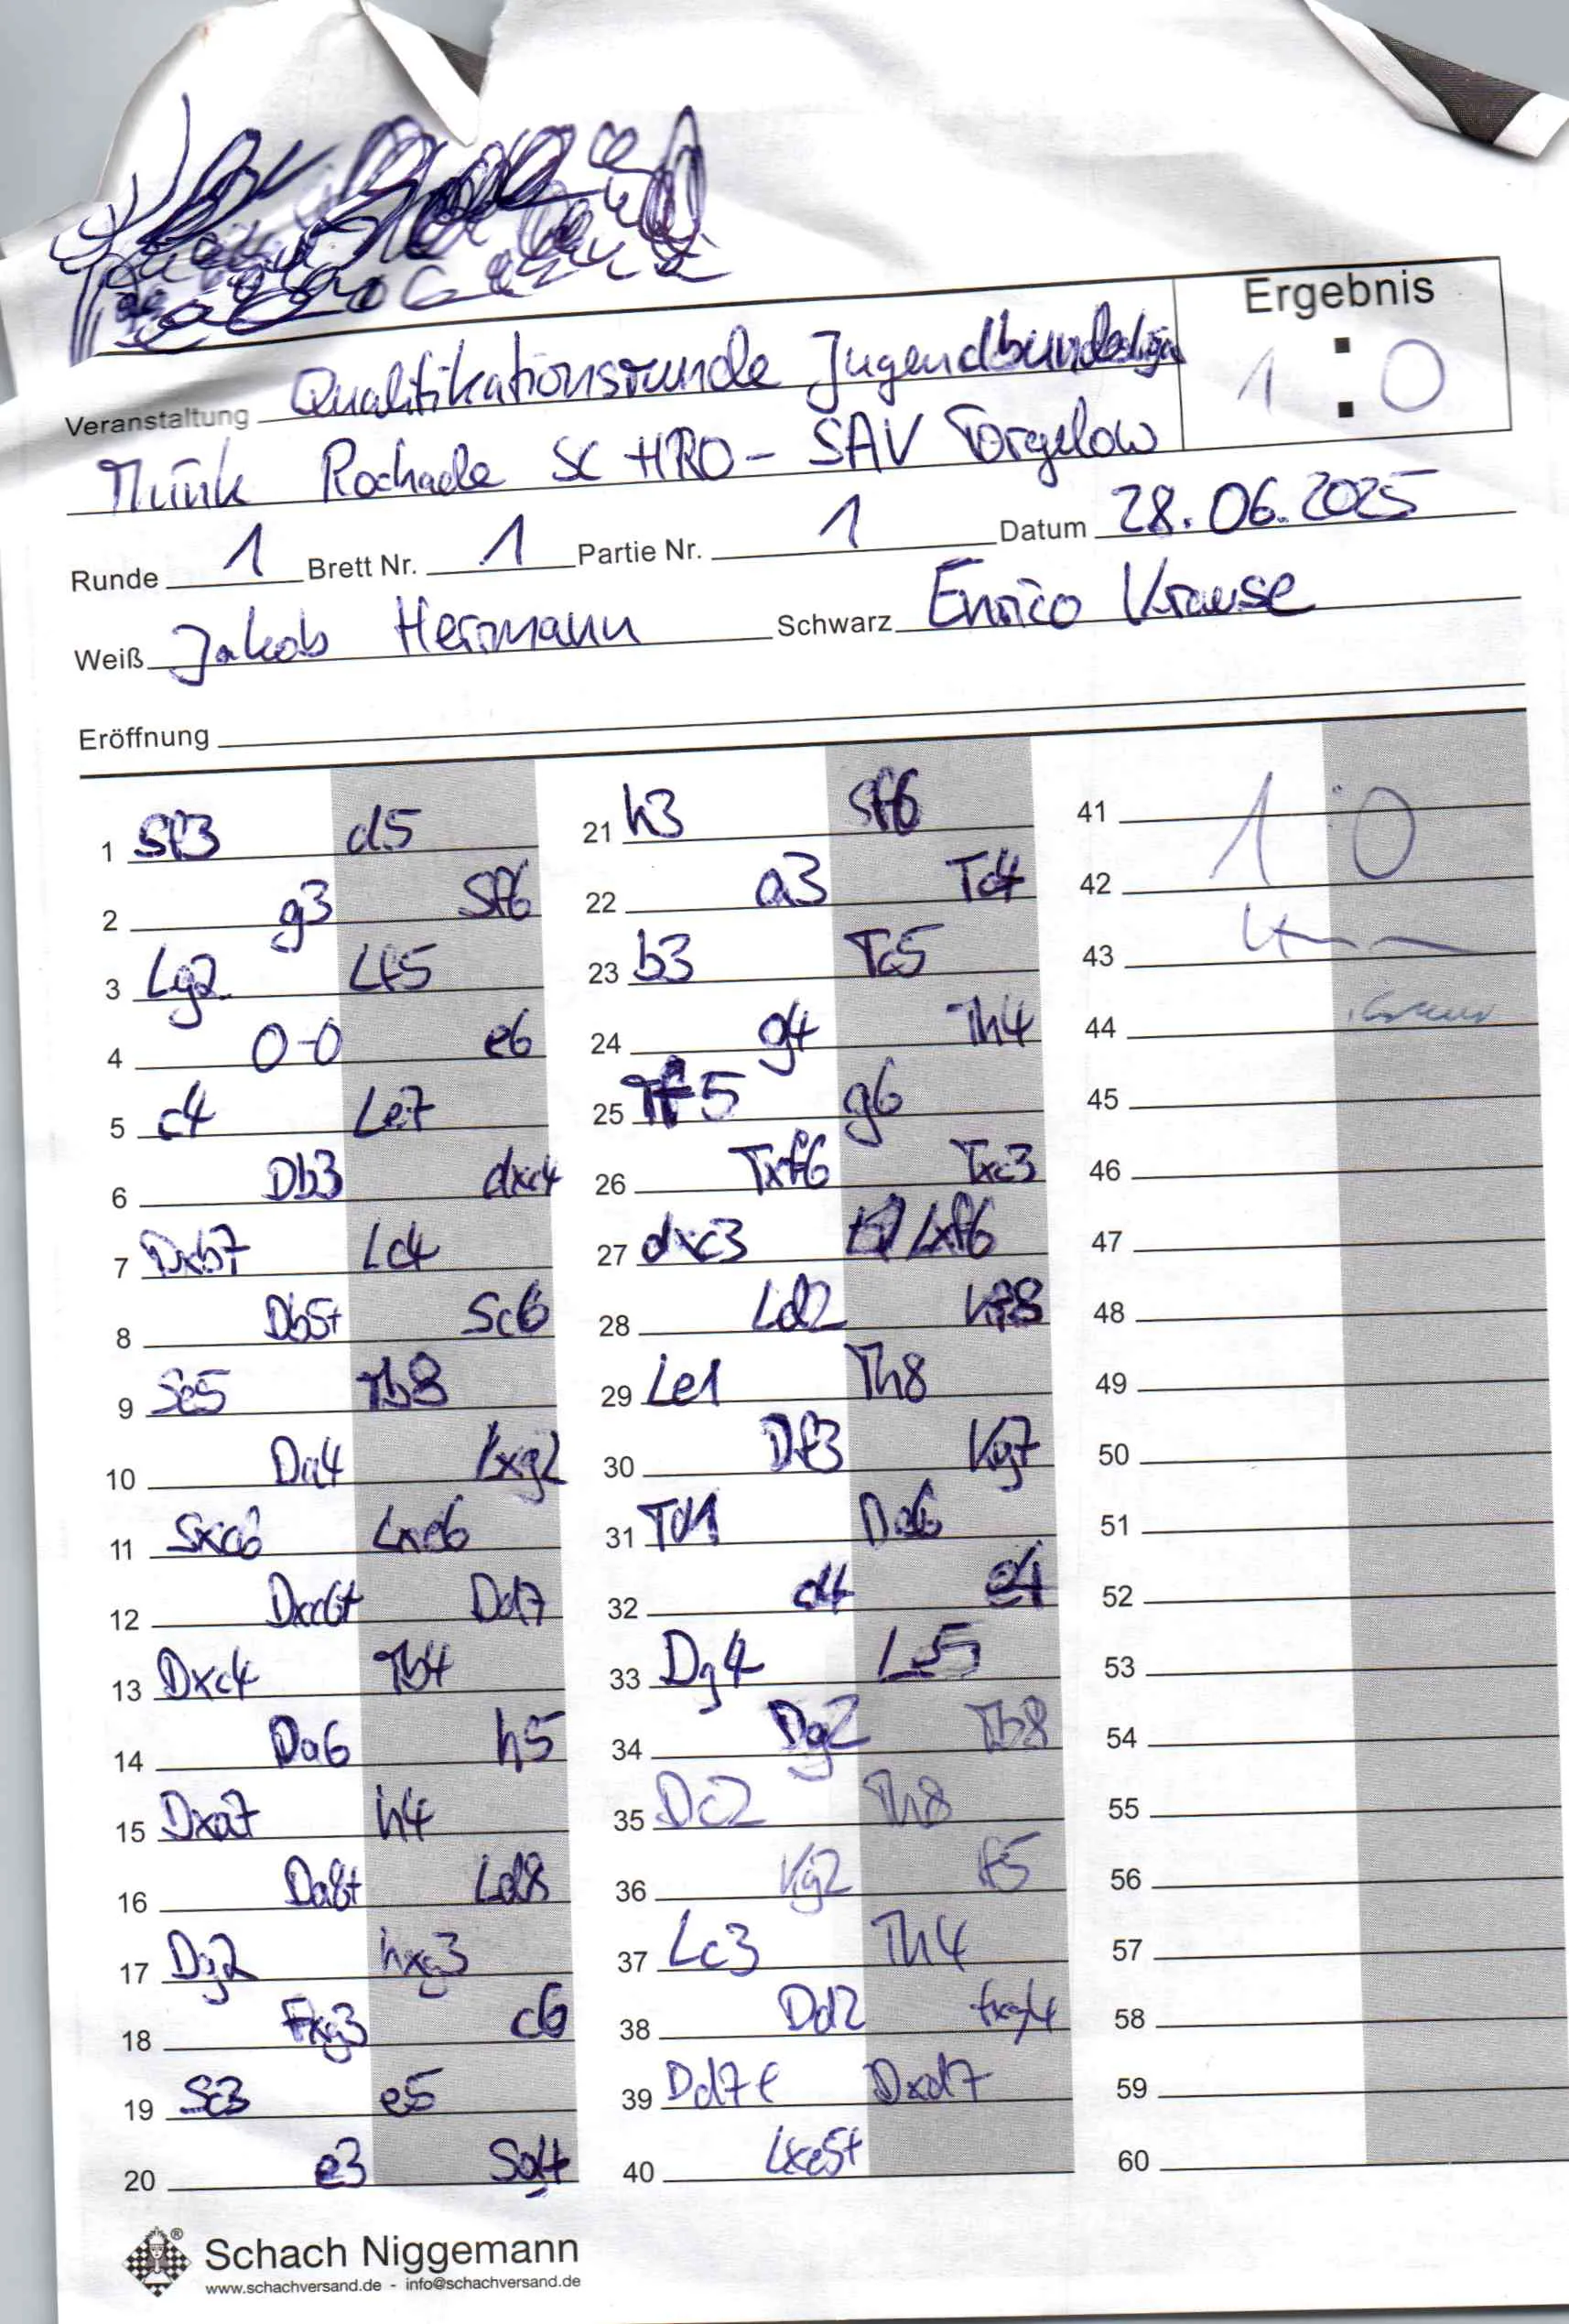 Ergebnis
1 : 0
Veranstaltung Qualifikationsrunde Jugendbundesliga
Think Rochade SC HRO - SAV Torgelow
Runde 1 Brett Nr. 1 Partie Nr. 1 Datum 28.06.2025
Weiß Jakob Hermann Schwarz Enrico Krause
Eröffnung
1 Sf3 d5
2 g3 Sf6
3 Lg2 Lf5
4 0-0 e6
5 c4 Le7
6 Db3 dxc4
7 Dxb7 Le4
8 Db5+ Sc6
9 Se5 Tb8
10 Da4 Lxg2
11 Sxc6 Lxc6
12 Dxc6+ Dd7
13 Dxc4 Tb4
14 Da6 h5
15 Dxa7 h4
16 Da8+ Ld8
17 Dg2 hxg3
18 Fxg3 c6
19 Sc3 e5
20 e3 Sg4
21 h3 Sf6
22 a3 Tc4
23 b3 Tc5
24 g4 Th4
25 Tf5 g6
26 Txf6 Txc3
27 dxc3 Lxf6
28 Ld2 Kf8
29 Le1 Th8
30 Df3 Kg7
31 Td1 De6
32 c4 e4
33 Dg4 Le5
34 Dg2 Tb8
35 Dc2 Th8
36 Kg2 f5
37 Lc3 Th4
38 Dd2 fxg4
39 Dd7+ Dxd7
40 Lxe5+
41 1 : 0
42
43
44
45
46
47
48
49
50
51
52
53
54
55
56
57
58
59
60
Schach Niggemann
www.schachversand.de - info@schachversand.de